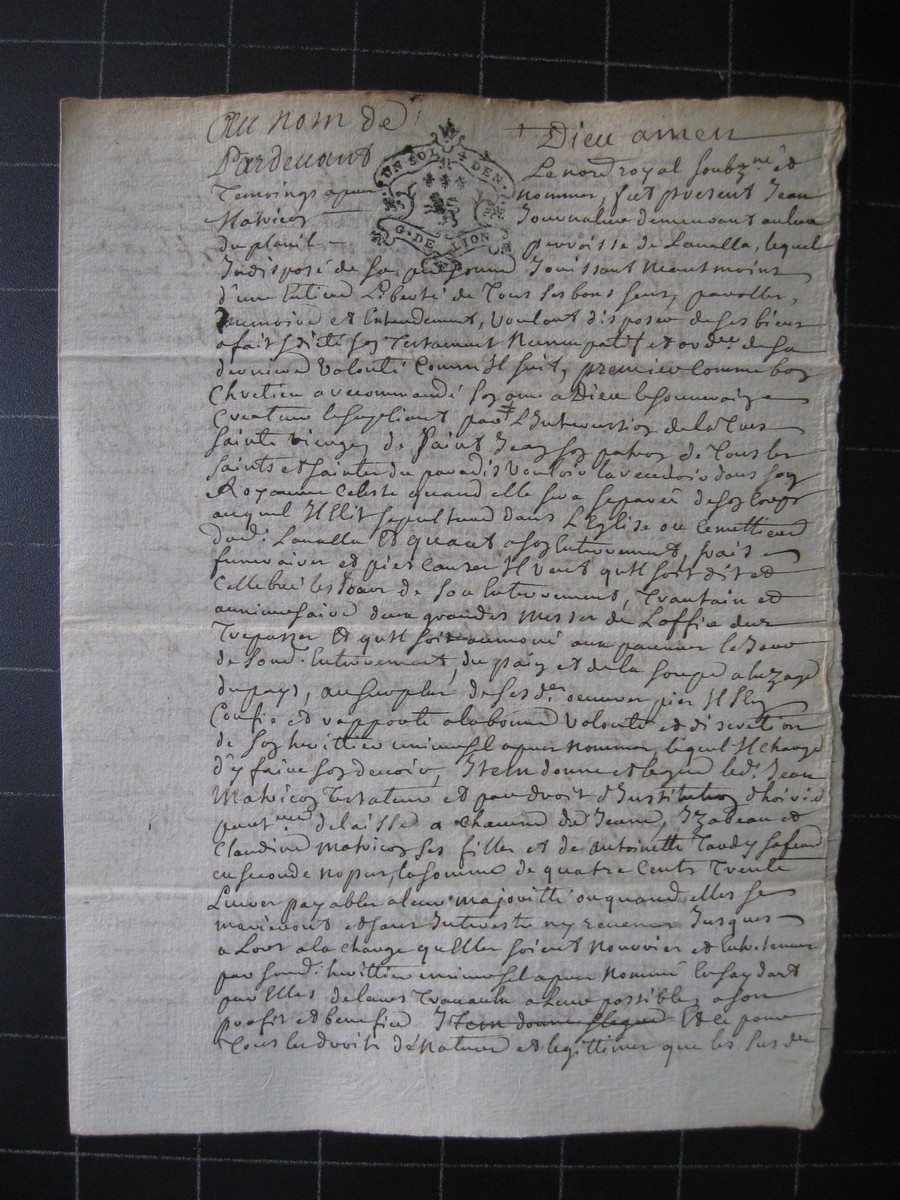 Au nom de Dieu amen
UN SOL 4 DEN.
G. DE LION
Pardevant Le no.re royal soubz.né et
Temoings apres nommes, fut present Jean
Matricon Journalier demeurant au lieu
du planil perroisse de Lavalla, lequel
Indisposé de sa personne Jouissant neantmoins
d'une Entiere Liberté de Tous ses bons sens, parolles,
memoire et Entendement, voulant disposer de ses biens
a fait & dicté son Testament Nuncupatif et ord.re de sa
derniere volonté Comme Il suit, premier comme bon
Chretien a recommandé son ame a Dieu le souverain
Createur le supliant par L'Intercession de la Tres
sainte vierge, de saint Jean son patron de Tous les
saints et saintes du paradis vouloir la recevoir dans son
Royaume Celeste quand elle sera separée de son corps
auquel Il Elit sepulture dans L'Eglise ou Cemettiere
dud. Lavalla Et quant a son Enterrement, frais
funeraires et pies causes Il veut qu'Il soit dit et
Cellebré les Jour de son Enterrement, Trantain et
anniversaire deux grandes messes de L'office des
Trepasses Et qu'Il soit aumoné aux pauvres le Jour
de sond. Enterrement, du pain et de la soupe a luzage
du pays, au surplus de ses d.es oeuvres pies Il s'En
Confie et rapporte a la bonne volonté et discretion
de son herittier universel apres nommé, lequel Il charge
d'y faire son devoir, Item donne et legue led. Jean
Matricon Testateur et par droit d'Institution d'hoirie
part.re delaisse a chacune de Jeanne, Izabeau et
Claudine Matricon ses filles et de Antoinette Tardy sa femme
en seconde nopces, la somme de quatre Cents Trente
Livres payables a leur majoritté ou quand elles se
marieront et sans Interests ny revenus Jusques
a Lors a la charge qu'Elles soient nourries et Entretenues
par sond. herittier universel apres nommé En saydant
par Elles de leurs Travaux a leur possible, a son
profit et benefice Item donne & legue Et ce pour
Tous les droits de Nature et legittimes que les sus d.es